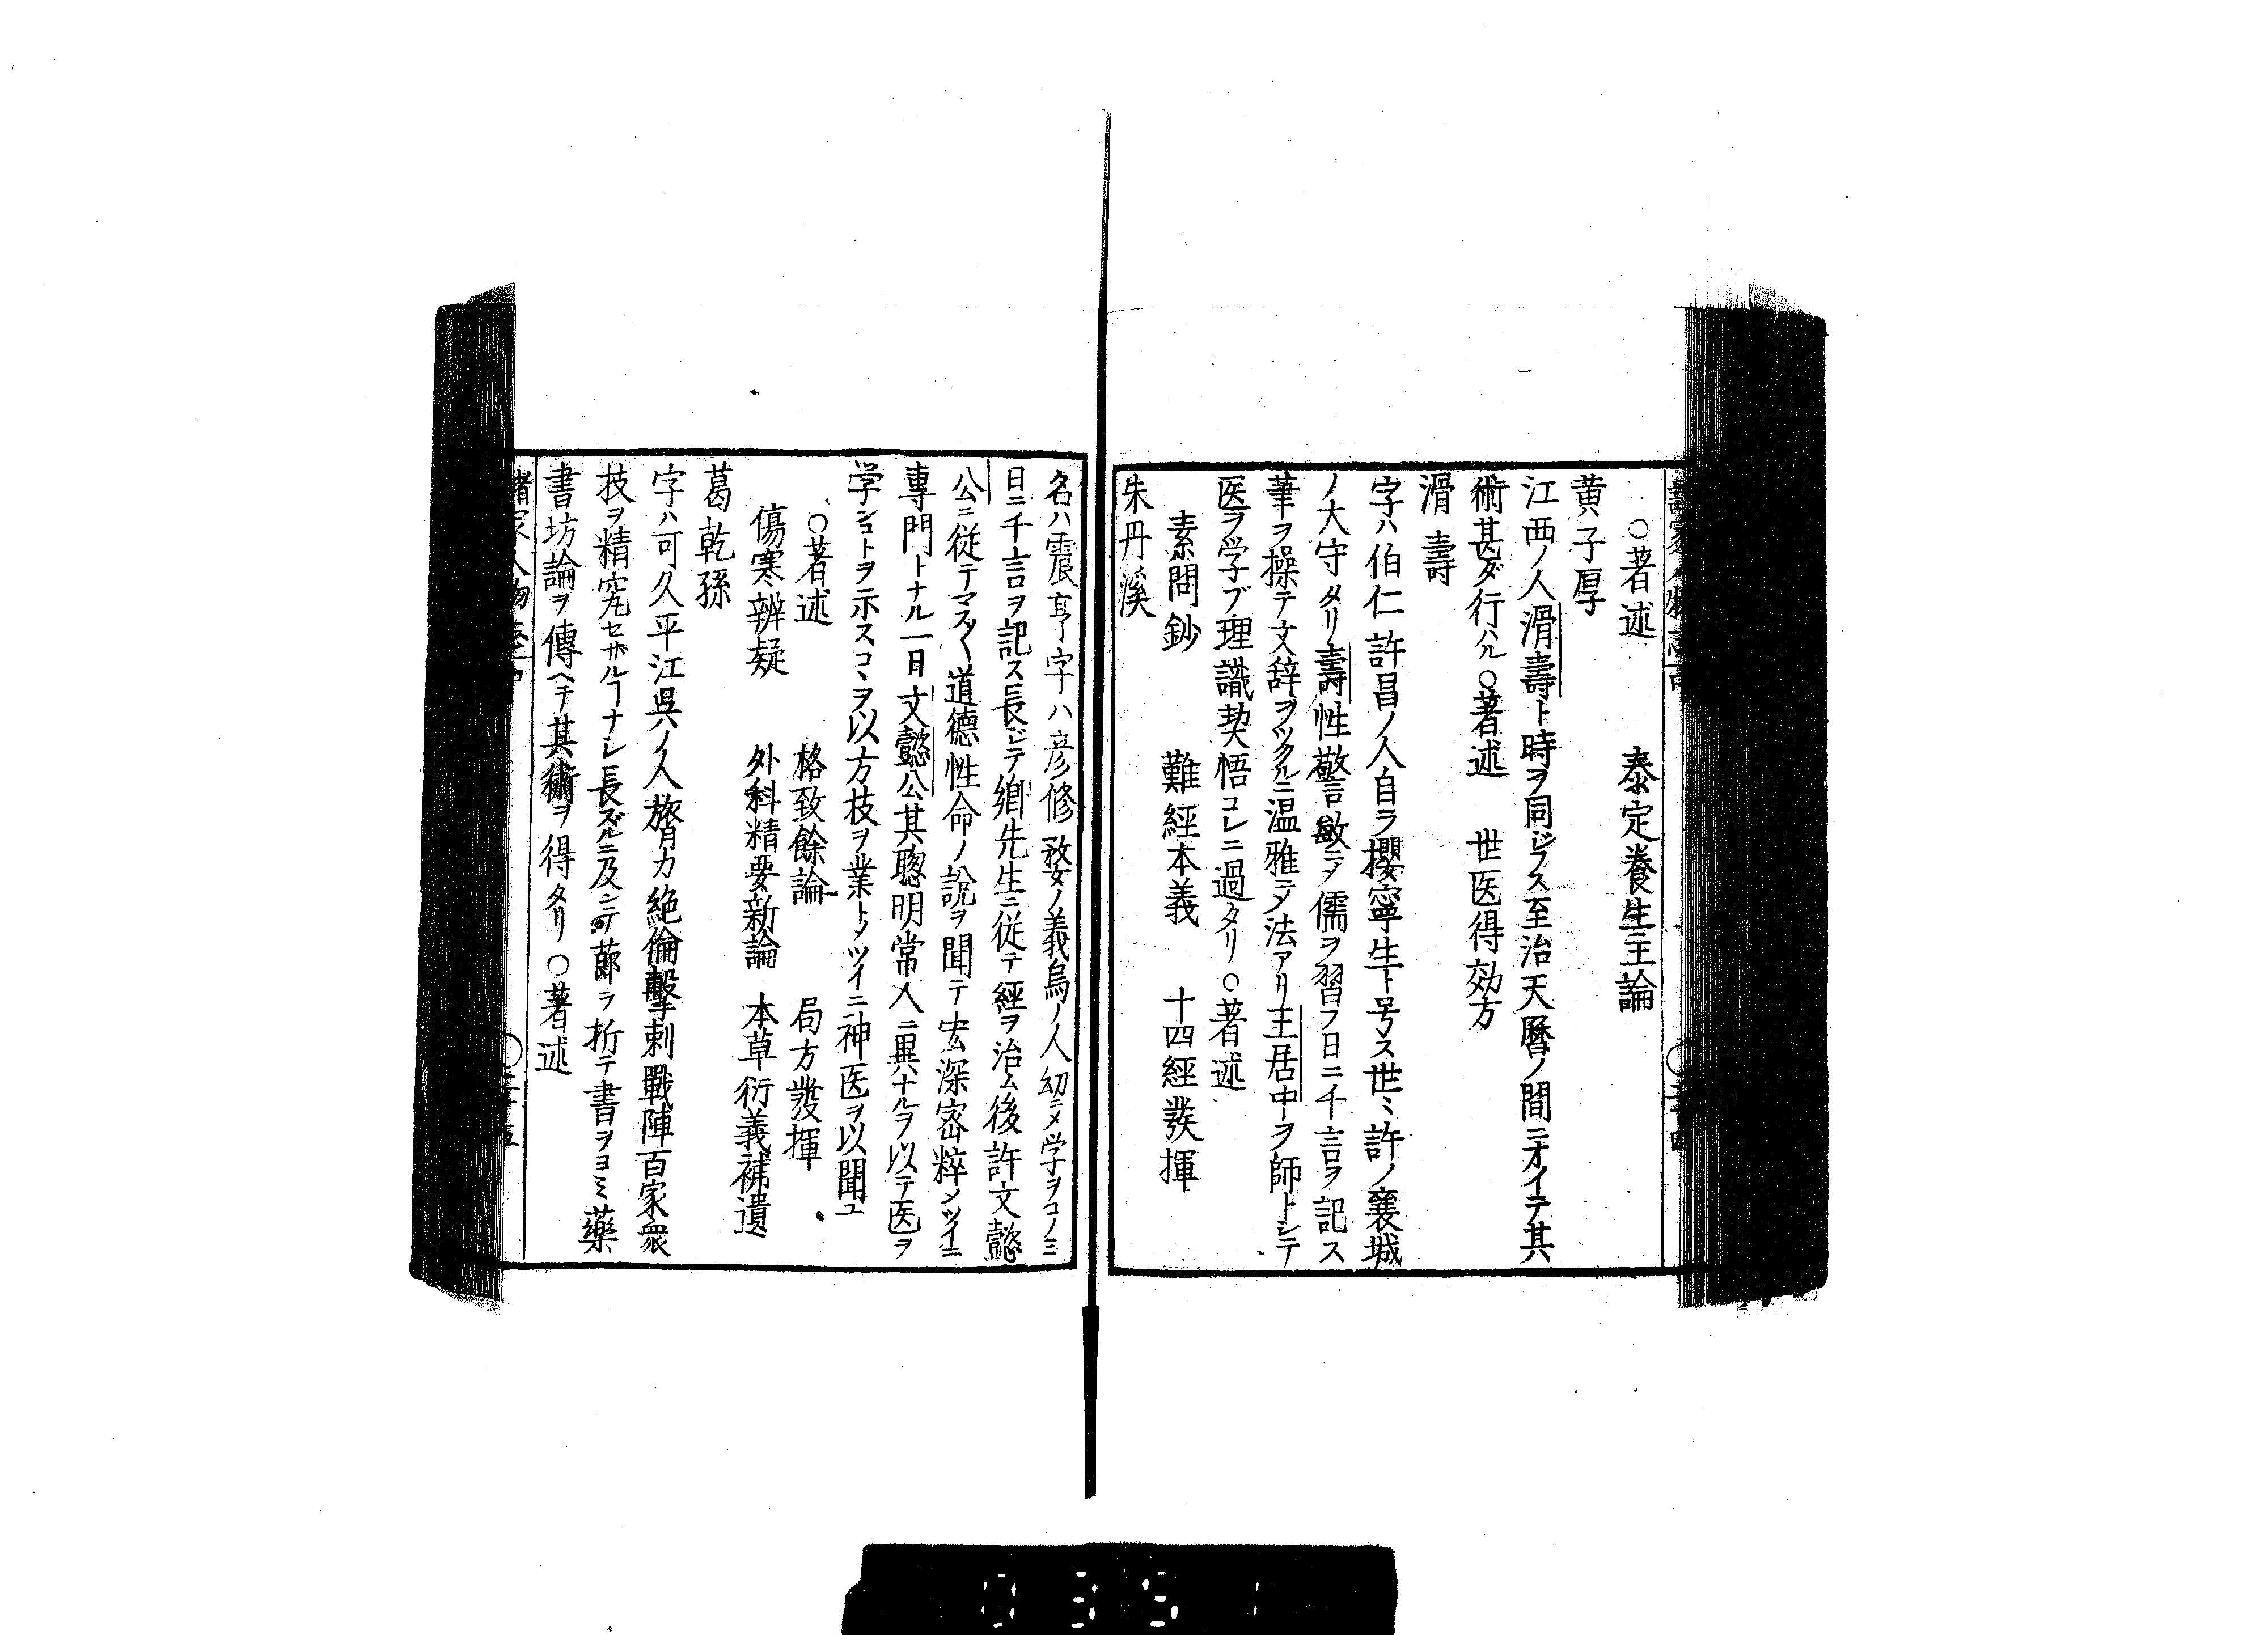 ○著述　　泰定養生主論
黄子厚
江西ノ人滑壽ト時ヲ同ジフス至治天暦ノ間ニオイテ其
術甚ダ行ハル○著述　世医得効方
滑壽
字ハ伯仁許昌ノ人自ラ攖寧生ト号ス世ミ許ノ襄城
ノ大守タリ壽性警敏ニメ儒ヲ習フ日ニ千言ヲ記ス
筆ヲ操テ文辞ヲツクルニ温雅ニメ法アリ王居中ヲ師トシテ
医ヲ学ブ理識契悟コレニ過タリ○著述
素問鈔　　難經本義　十四經發揮
朱丹溪
名ハ震亨字ハ彦修婺ノ義烏ノ人幼ニメ学ヲコノミ
日ニ千言ヲ記ス長ジテ鄉先生ニ従テ經ヲ治ム後許文懿
公ニ従テマス〱道德性命ノ說ヲ聞テ宏深密粹ツイニ
專門トナル一日文懿公其聰明常人ニ異ナルヲ以テ医ヲ
学ンコトヲ示スコヽヲ以方技ヲ業トメツイニ神医ヲ以聞ユ
○著述　　格致餘論　　局方發揮
傷寒辨疑　　外科精要新論　本草衍義補遺
葛乾孫
字ハ可久平江呉ノ人膂力絶倫擊刺戰陣百家衆
技ヲ精究セザルヿナシ長ズルニ及ンテ節ヲ折テ書ヲヨミ藥
書坊論ヲ傳ヘテ其術ヲ得タリ○著述